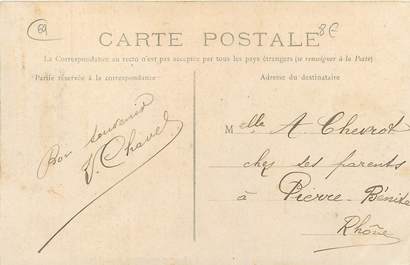 69
8€
CARTE POSTALE
La Correspondance au recto n'est pas acceptée par tous les pays étrangers (se renseigner à la Poste)
Partie réservée à la correspondance
Adresse du destinataire
Bon souvenir
V. Chavel
Melle A. Chevrot
chez ses parents
à Pierre-Bénite
Rhône